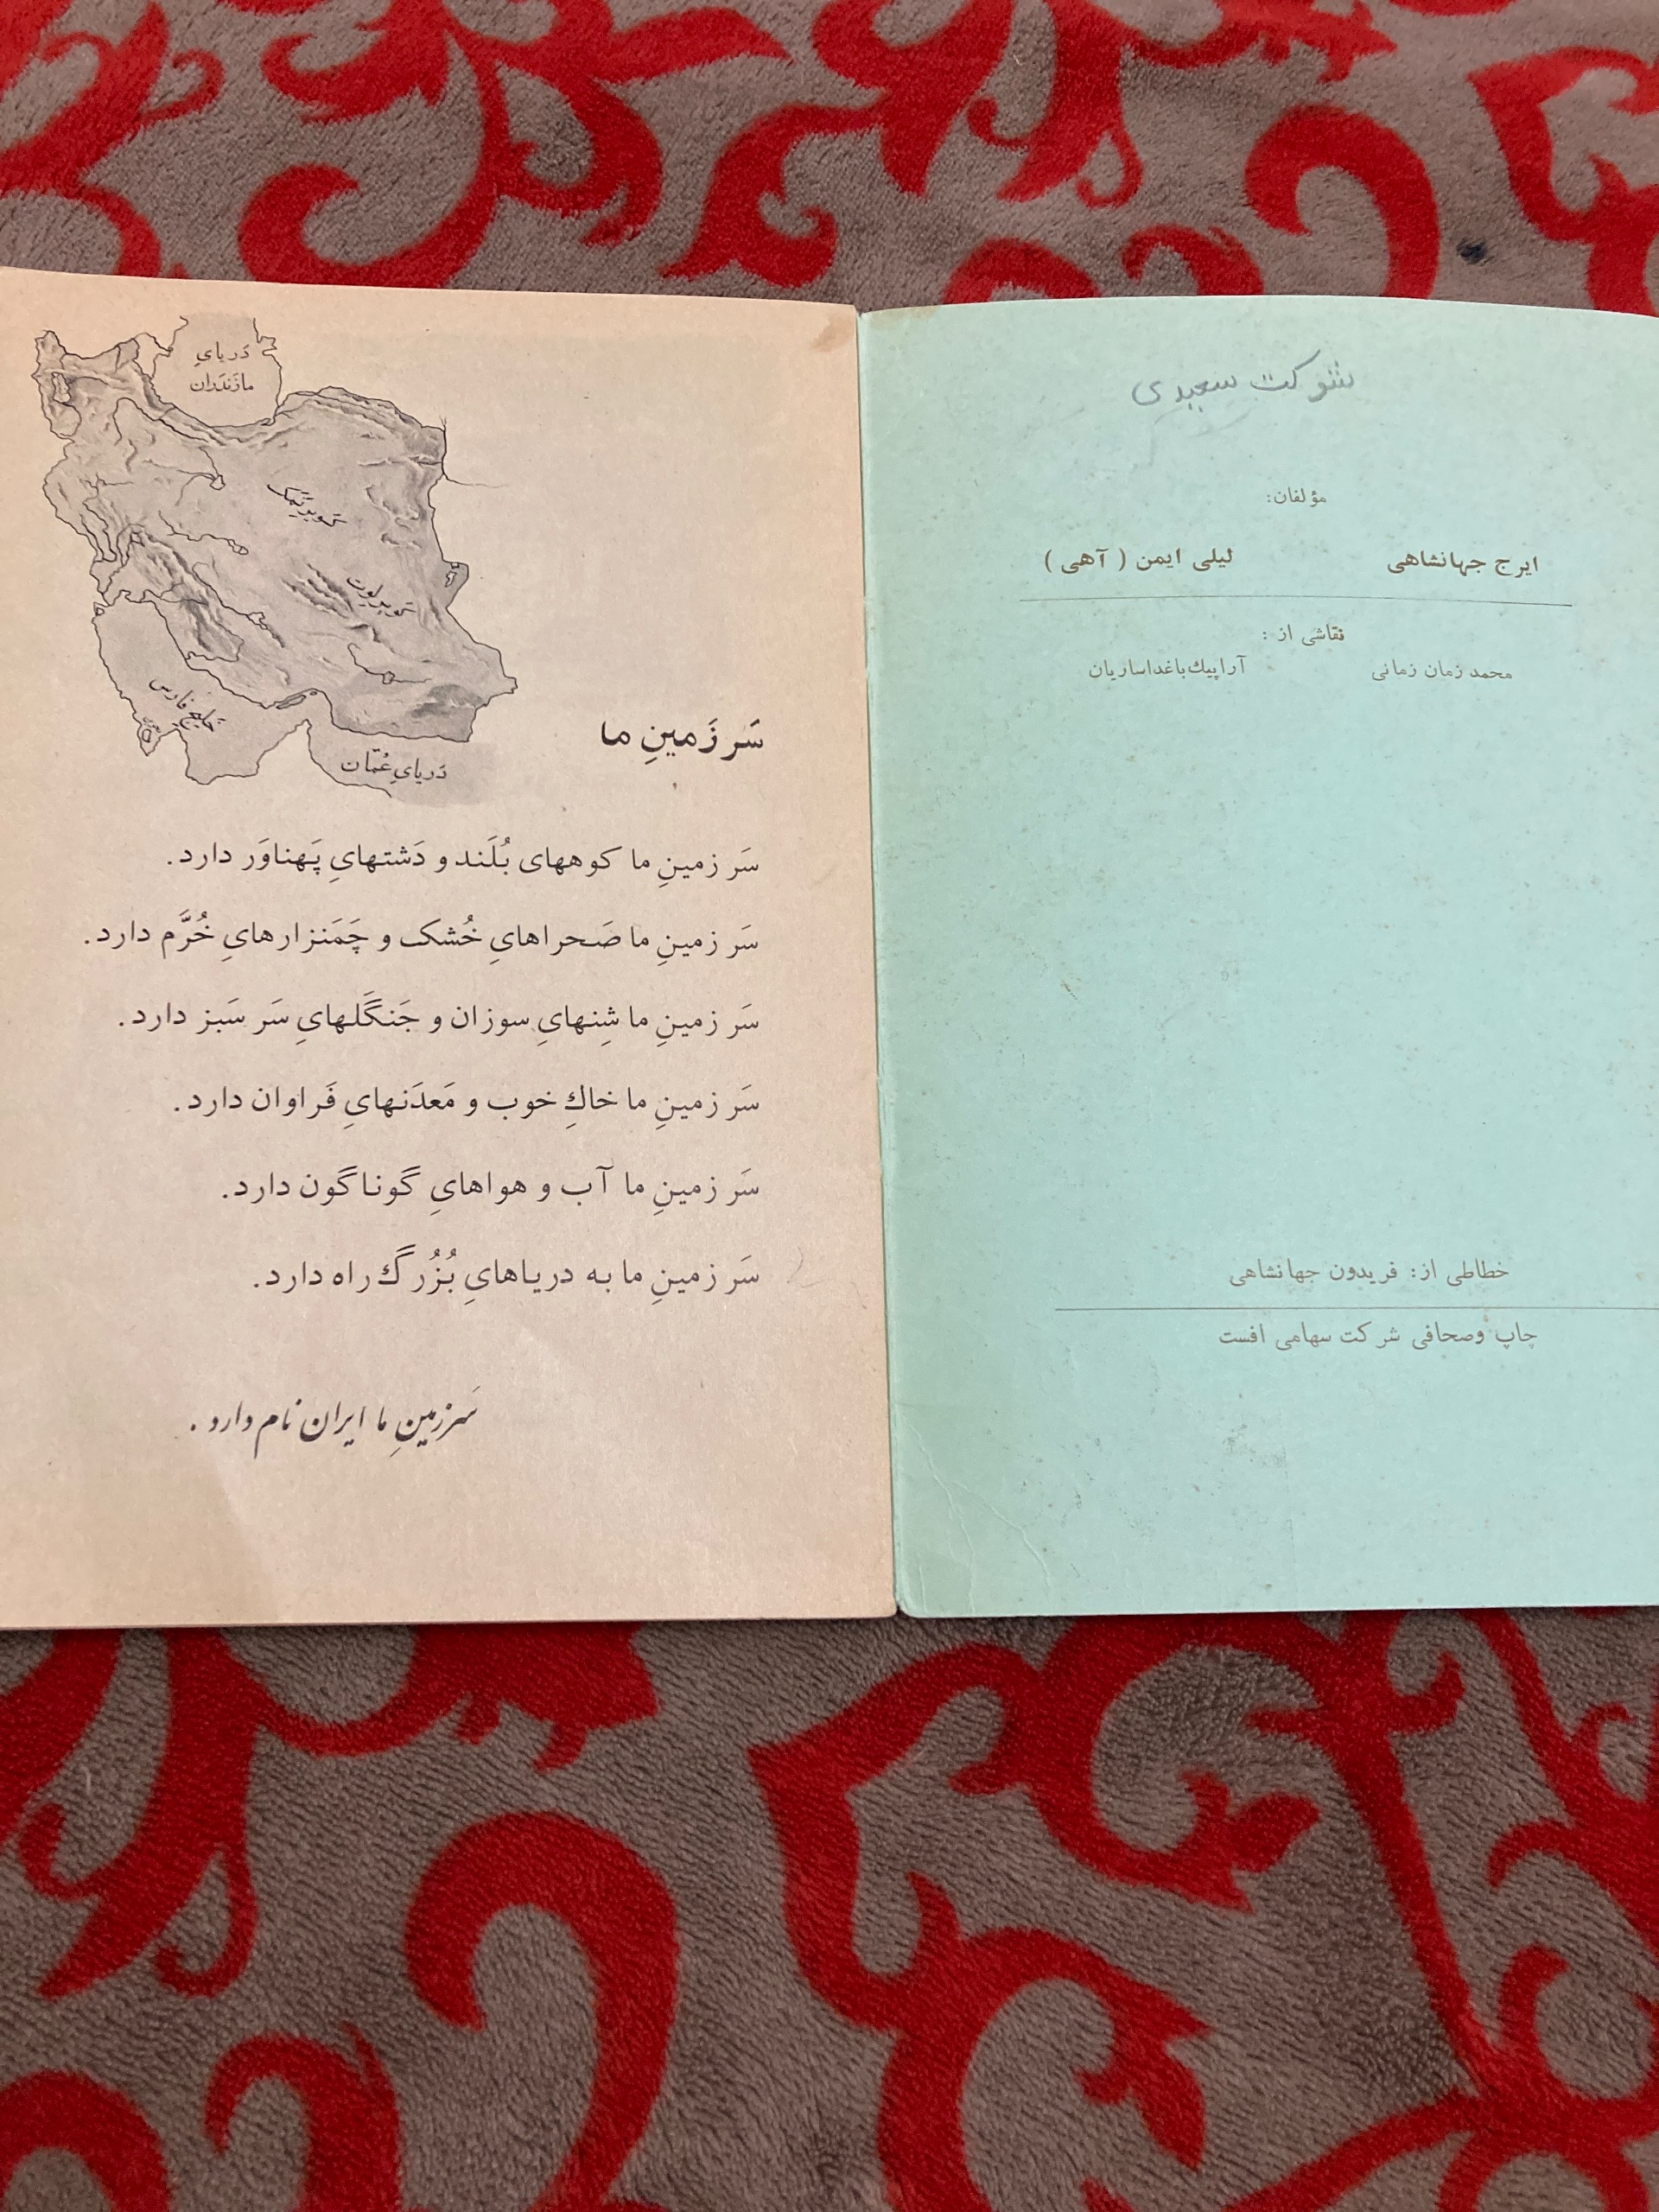 شوکت سعیدی
مؤلفان:
ایرج جهانشاهی لیلی ایمن ( آهی )
نقاشی از :
محمد زمان زمانی آراپیك باغداساریان
خطاطی از: فریدون جهانشاهی
چاپ وصحافی شرکت سهامی افست
دَریایِ
مازَندَران
کویرِ نَمَک
کویرِ لوت
خلیج فارس
دَریایِ عُمّان
سَرزَمینِ ما
سَرزمینِ ما کوههای بُلَند و دَشتهایِ پَهناوَر دارد.
سَرزمینِ ما صَحراهایِ خُشک و چَمَنزارهایِ خُرَّم دارد.
سَرزمینِ ما شِنهایِ سوزان و جَنگَلهایِ سَرسَبز دارد.
سَرزمینِ ما خاكِ خوب و مَعدَنهایِ فَراوان دارد.
سَرزمینِ ما آب و هواهایِ گوناگون دارد.
سَرزمینِ ما به دریاهایِ بُزُرگ راه دارد.
سَرزمینِ ما ایران نام دارد.